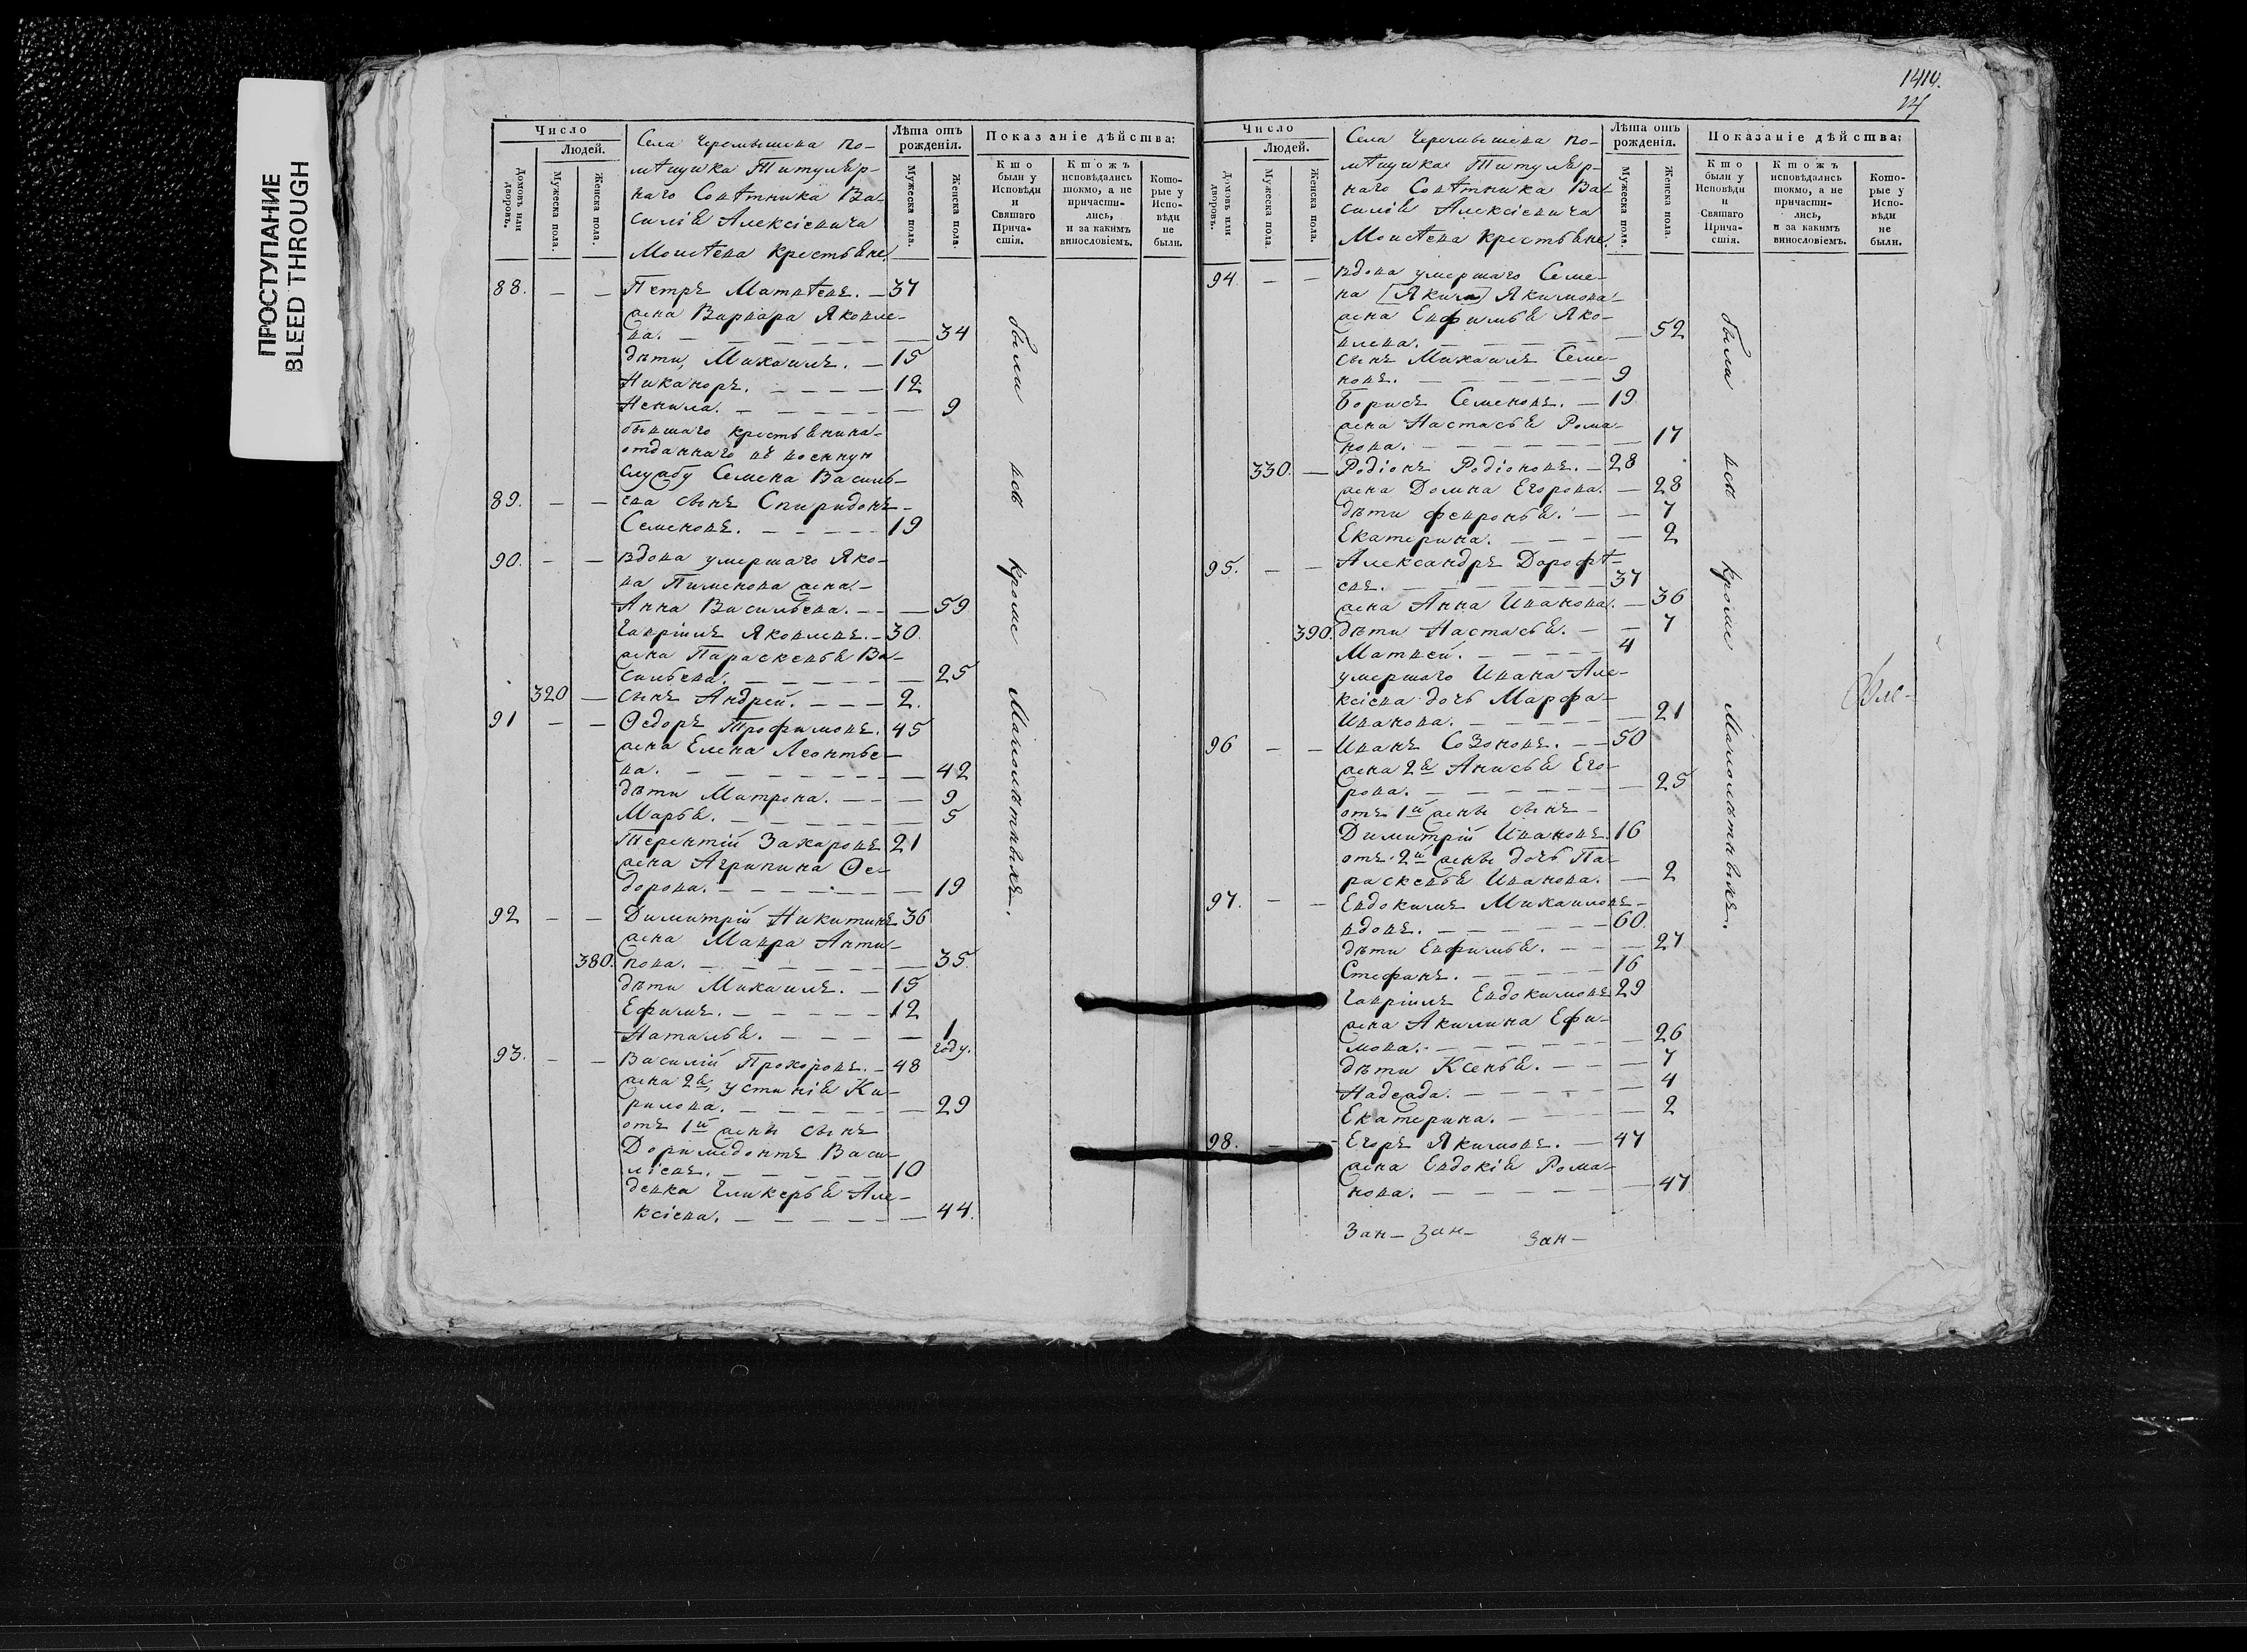 ПРОСТУПАНИЕ
BLEED THROUGH
Число
Людей.
Домовъ или дворовъ.
Мужеска пола.
Женска пола.
Села Черемышева по-
мѣщика Титуляр-
наго Совѣтника Ва-
силія Алексіевича
Моисѣева крестьяне
Лѣта отъ рожденія.
Мужеска пола.
Женска пола.
Показаніе дѣйства:
Кто были у Исповѣди и Святаго Прича-стія.
Ктожъ исповѣдались токмо, а не причасти-лись, и за какимъ винословіемъ.
Кото-рые у Испо-вѣди не были.
88. — — Петръ Матвѣевъ. — 37
жена Варвара Яковле-
ва. — 34
дѣти, Михаилъ. — 15
Никаноръ. — 12
Ненила. — 9
бывшаго крестьянина
отданнаго въ военную
службу Семена Василь-
89. — — ева сынъ Спиридонъ
Семеновъ. — 19
90. — — Вдова умершаго Яко-
ва Пименова жена
Анна Васильева. — 59
Гавріилъ Яковлевъ. — 30.
жена Параскевья Ва-
сильева. — 25
320 — сынъ Андрей. — 2.
91 — — Ѳедоръ Трофимовъ. 45
жена Елена Леонтье-
ва. — 42
дѣти Матрона. — 9
Марья. — 5
Терентій Захаровъ 21
жена Агрипина Ѳе-
дорова. — 19
92 — — Димитрій Никитинъ 36
жена Мавра Анти-
380. пова. — 35.
дѣти Михаилъ. — 15
Ефимъ. — 12
Наталья. — 1 году.
93. — — Василій Прохоровъ. — 48
жена 2я Устинія Ки-
рилова. — 29
отъ 1й жены сынъ
Доримедонтъ Васи-
ліевъ. — 10
девка Гликерья Але-
ксіева. — 44.
были всѣ кроме малолѣтныхъ.
1414.
14
Число
Людей.
Домовъ или дворовъ.
Мужеска пола.
Женска пола.
Села Черемышева по-
мѣщика Титуляр-
наго Совѣтника Ва-
силія Алексіевича
Моисѣева крестьяне.
Лѣта отъ рожденія.
Мужеска пола.
Женска пола.
Показаніе дѣйства:
Кто были у Исповѣди и Святаго Прича-стія.
Ктожъ исповѣдались токмо, а не причасти-лись, и за какимъ винословіемъ.
Кото-рые у Испо-вѣди не были.
94. — — Вдова умершаго Семе-
на [Якима] Якимова
жена Евфимья Яко-
влева. — 52
сынъ Михаилъ Семе-
новъ. — 9
Борисъ Семеновъ. — 19
жена Настасья Рома-
нова. — 17
330. — Родіонъ Родіоновъ. — 28
жена Домна Егорова. — 28
дѣти Февронья. — 7
Екатерина. — 2
95. — — Александръ Дорофѣ-
евъ. — 37
жена Анна Иванова. — 36
390. дѣти Настасья. — 7
Матвей. — 4
умершаго Ивана Але-
ксіева дочь Марфа
Иванова. — 21
96 — — Иванъ Созоновъ. — 50
жена 2я Анисья Его-
рова. — 25
отъ 1й жены сынъ
Димитрій Ивановъ. 16
отъ 2й жены дочь Па-
раскевья Иванова. — 2
97. — — Евдокимъ Михаиловъ
вдовъ. — 60.
дѣти Евфимья. — 27
Стефанъ. — 16
Гавріилъ Евдокимовъ 29
жена Акилина Ефи-
мова. — 26
дѣти Ксенья. — 7
Надежда. — 4
Екатерина. — 2
98. — — Егоръ Якимовъ. — 47
жена Евдокія Рома-
нова. — 47
были всѣ кроме малолѣтныхъ.
Зан- Зан- Зан-